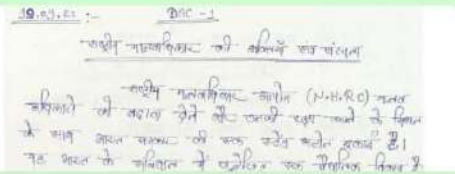 19.09.22 :- DSC-1
राष्ट्रीय मानवाधिकार की शक्तियाँ एवं संरचना
राष्ट्रीय मानवाधिकार आयोग (N.H.R.C) मानव
अधिकारों को बढ़ावा देने और उनकी रक्षा करने के
के साथ भारत सरकार की एक स्वतंत्र इकाई है।
यह भारत के संविधान में एक वैधानिक निकाय है